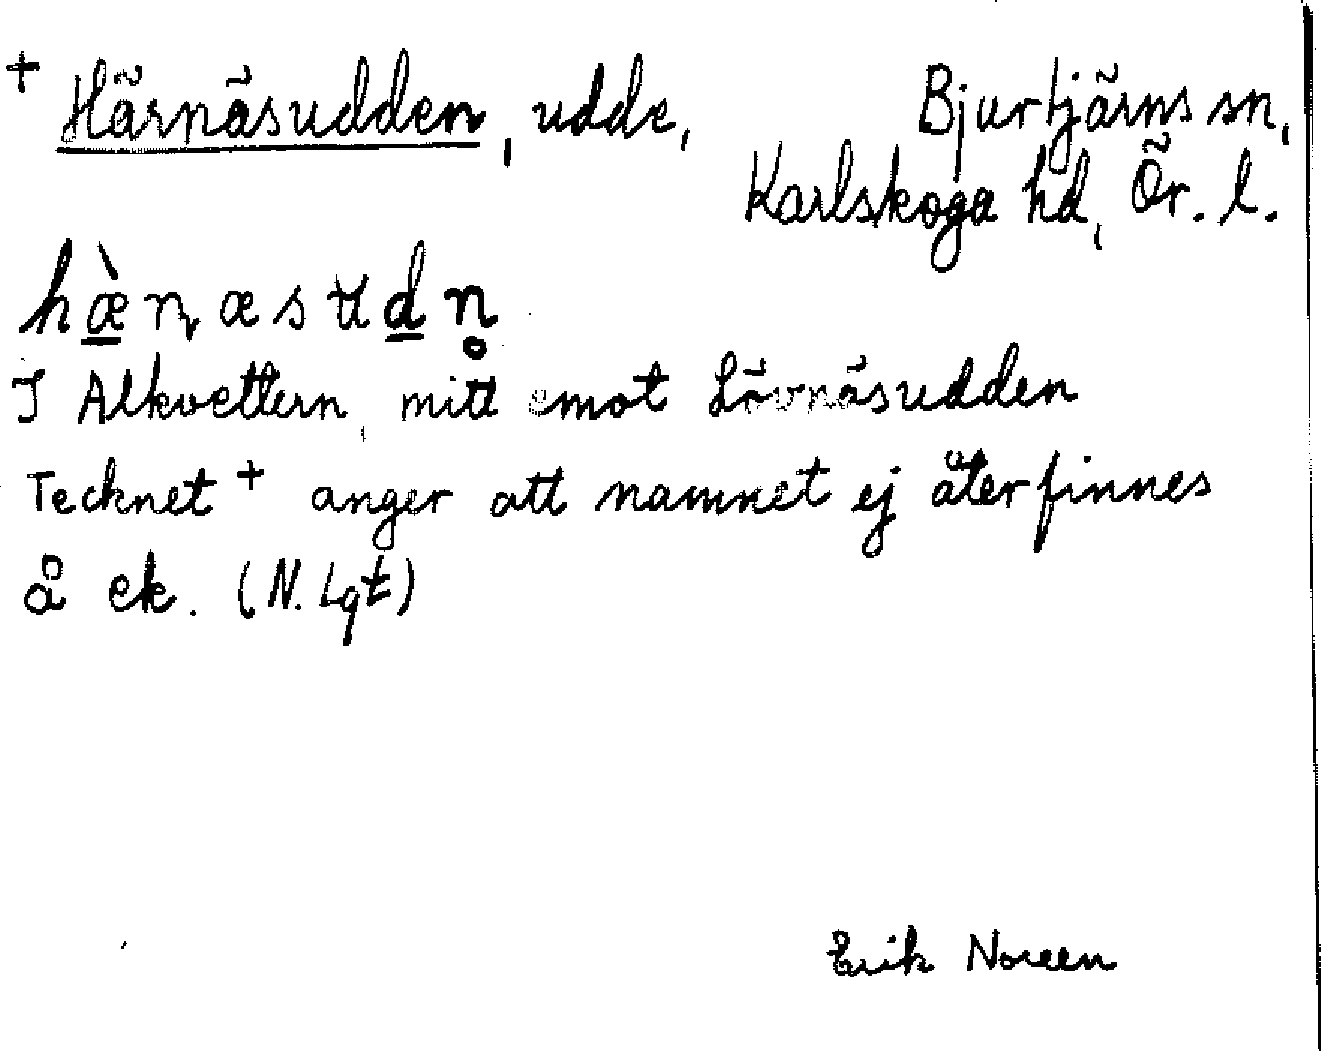 + Härnäsudden, udde, Bjurtjärns sn,
Karlskoga hd, Ör. l.
hæ̀ɳæsudn̥
I Alkvettern, mitt emot Lövnäsudden
Tecknet + anger att namnet ej återfinnes
å ek. (N. Lgt)
Erik Noreen